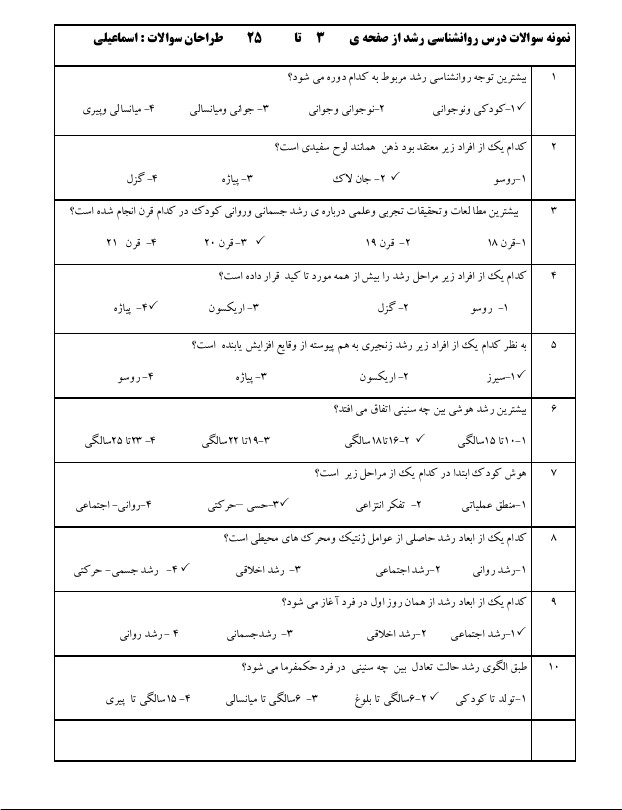 نمونه سوالات درس روانشناسی رشد از صفحه ی ۳ تا ۲۵ طراحان سوالات : اسماعیلی
۱ بیشترین توجه روانشناسی رشد مربوط به کدام دوره می شود؟
✓۱-کودکی ونوجوانی ۲-نوجوانی وجوانی ۳- جوانی ومیانسالی ۴- میانسالی وپیری
۲ کدام یک از افراد زیر معتقد بود ذهن همانند لوح سفیدی است؟
۱-روسو ✓ ۲- جان لاک ۳- پیاژه ۴- گزل
۳ بیشترین مطالعات وتحقیقات تجربی وعلمی درباره ی رشد جسمانی وروانی کودک در کدام قرن انجام شده است؟
۱-قرن ۱۸ ۲- قرن ۱۹ ✓ ۳-قرن ۲۰ ۴- قرن ۲۱
۴ کدام یک از افراد زیر مراحل رشد را بیش از همه مورد تاکید قرار داده است؟
۱- روسو ۲- گزل ۳- اریکسون ✓۴- پیاژه
۵ به نظر کدام یک از افراد زیر رشد زنجیری به هم پیوسته از وقایع افزایش یابنده است؟
✓۱-سیرز ۲- اریکسون ۳- پیاژه ۴- روسو
۶ بیشترین رشد هوشی بین چه سنینی اتفاق می افتد؟
۱-۱۰تا ۱۵سالگی ✓ ۲-۱۶تا۱۸سالگی ۳-۱۹تا ۲۲سالگی ۴- ۲۳تا ۲۵سالگی
۷ هوش کودک ابتدا در کدام یک از مراحل زیر است؟
۱-منطق عملیاتی ۲- تفکر انتزاعی ✓۳-حسی –حرکتی ۴-روانی- اجتماعی
۸ کدام یک از ابعاد رشد حاصلی از عوامل ژنتیک ومحرک های محیطی است؟
۱-رشد روانی ۲-رشد اجتماعی ۳- رشد اخلاقی ✓ ۴- رشد جسمی- حرکتی
۹ کدام یک از ابعاد رشد از همان روز اول در فرد آغاز می شود؟
✓۱-رشد اجتماعی ۲-رشد اخلاقی ۳- رشدجسمانی ۴ - رشد روانی
۱۰ طبق الگوی رشد حالت تعادل بین چه سنینی در فرد حکمفرما می شود؟
۱-تولد تا کودکی ✓ ۲-۶سالگی تا بلوغ ۳- ۶سالگی تا میانسالی ۴- ۱۵سالگی تا پیری